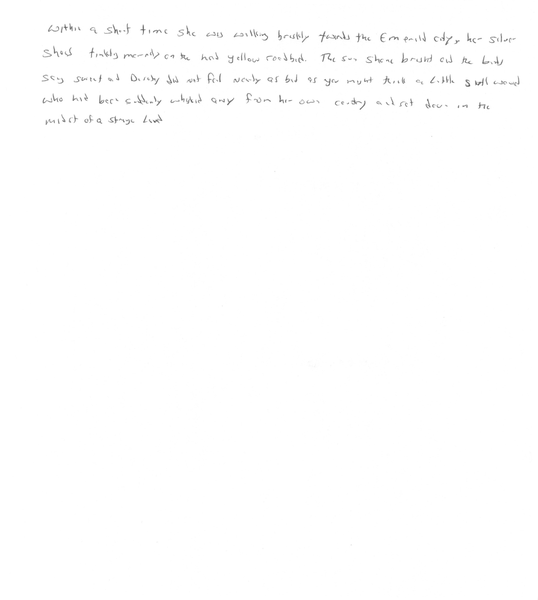 Within a short time she was walking briskly towards the Emerald City, her silver
shoes tinkling merrily on the hard yellow roadbed. The sun shone bright and the birds
sang sweet and Dorothy did not feel nearly as bad as you might think a little girl would
who had been suddenly whisked away from her own country and set down in the
midst of a strange land